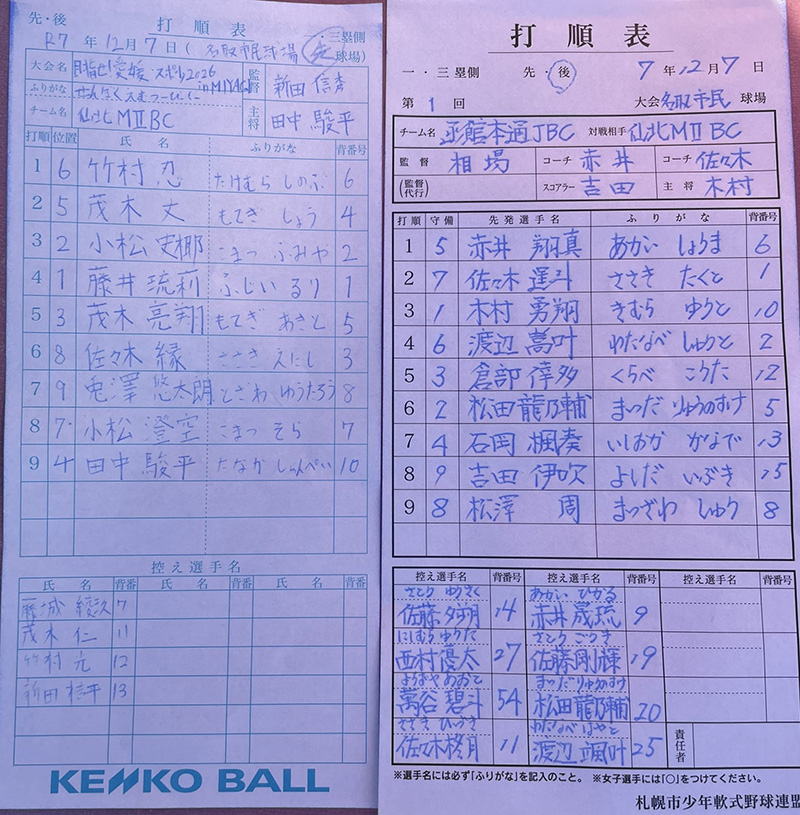 先・後 打順表 一・三塁側
R7年12月7日(名取市民球場 先 球場)
大会名 目指せ!愛媛 スポ少2026 in MIYAGI 監督 新田 信斉
ふりがな せんぼくえむつーびーしー
チーム名 仙北MⅡBC 主将 田中 駿平
打順 位置 氏名 ふりがな 背番号
1 6 竹村 忍 たけむら しのぶ 6
2 5 茂木 丈 もてぎ じょう 4
3 2 小松 史椰 こまつ ふみや 2
4 1 藤井 琉莉 ふじい るり 1
5 3 茂木 亮翔 もてぎ あきと 5
6 8 佐々木 縁 ささき えにし 3
7 9 兎澤 悠太朗 とざわ ゆうたろう 8
8 7 小松 澄空 こまつ そら 7
9 4 田中 駿平 たなか しゅんぺい 10
控え選手名
氏名 背番 氏名 背番号 氏名 背番
藤城 綾汰 7
茂木 仁 11
竹村 元 12
新田 桔平 13
KENKO BALL
打順表
一・三塁側 先・後 7年12月7日
第1回 大会 名取市民 球場
チーム名 函館本通JBC 対戦相手 仙北MⅡBC
監督 相場 コーチ 赤井 コーチ 佐々木
(監督代行) スコアラー 吉田 主将 木村
打順 守備 先発選手名 ふりがな 背番号
1 5 赤井 翔真 あかい しょうま 6
2 7 佐々木 運斗 ささき たくと 1
3 1 木村 勇翔 きむら ゆうと 10
4 6 渡辺 萬叶 わたなべ しゅうと 2
5 3 倉部 倖多 くらべ こうた 12
6 2 松田 龍乃輔 まつだ りゅうのすけ 5
7 4 石岡 楓奏 いしおか かなで 13
8 9 吉田 伊吹 よしだ いぶき 15
9 8 松澤 周 まつざわ しゅう 8
控え選手名 背番号 控え選手名 背番号 控え選手名 背番号
さとう ゆうさく あかい ひかる
佐藤 夕朔 14 赤井 晟琉 9
にしむら ゆうた さとう ごうき
西村 優太 27 佐藤 剛輝 19
よろずや あおと まつだ りゅうのすけ
萬谷 碧斗 54 松田 龍乃輔 20
ささき ひづき わたなべ はやと
佐々木 柊月 11 渡辺 颯叶 25
責任者
※選手名には必ず「ふりがな」を記入のこと。 ※女子選手には「○」をつけてください。
札幌市少年軟式野球連盟